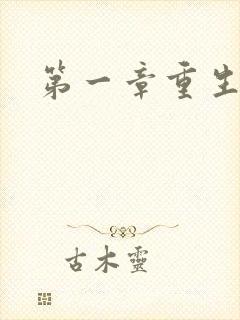 第一章重生
古木靈